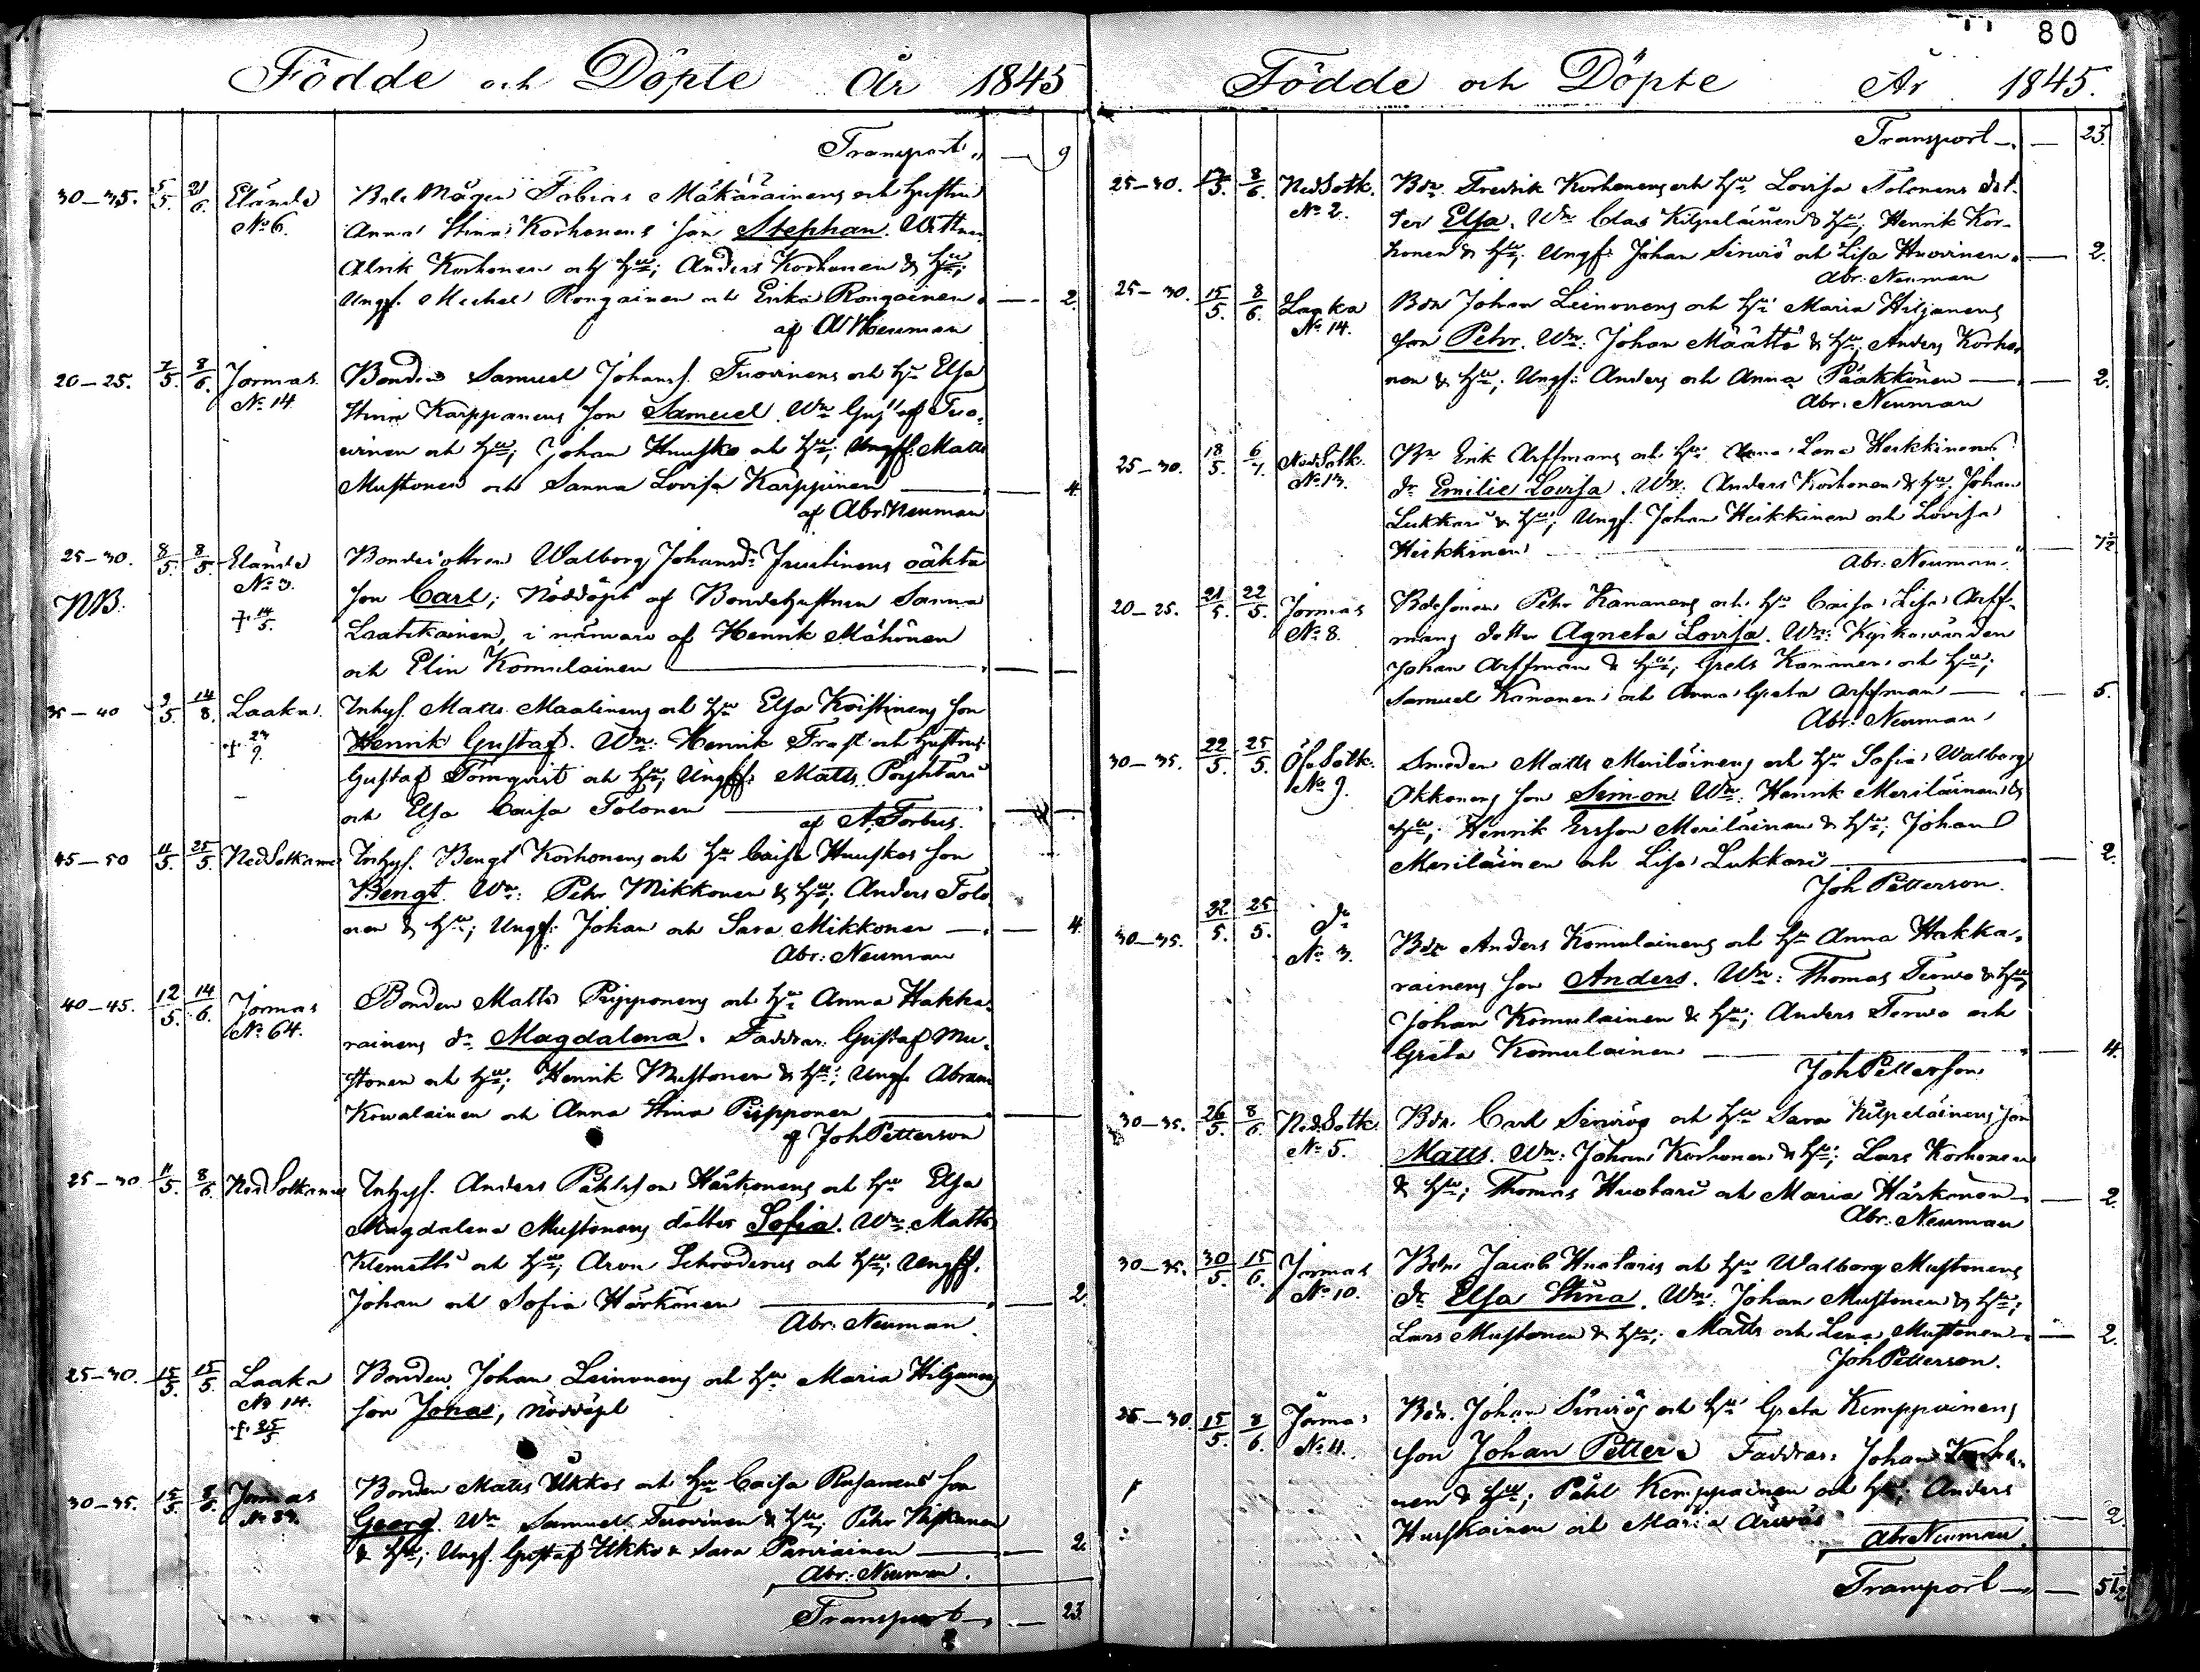 Födde och Döpte År 1845
Transport 9
30–35. 5/5. 21/6. Eländs Bde Mågen Tobias Mäkäräinens och Hustru
No 6. Anna Stina Korhonens son Stephan. Wittnen
Alrik Korhonen och Hu; Anders Korhonen & Hu;
Ungf. Michel Rongainen och Erika Rongainen. — 2.
af A Neuman
20–25. 7/5. 8/6. Jormas Bonden Samuel Johanss. Tuovinens och Hu Elsa
No 14. Stina Karppanens son Samuel. Wn Gustaf Tuo-
vinen och Hu; Johan Huusko och Hu; Ungff. Matts
Mustonen och Sanna Lovisa Karppinen — 4.
af Abr: Neuman
25–30. 8/5. 8/5. Eländs Bondedottren Walborg Johansdr Juutinens oäkta
NB. No 3. son Carl; Nöddöpt af Bondehustrun Sanna
† 14/5. Laatikainen, i närvaro af Henrik Mähönen
och Elin Komulainen —
35–40 9/5. 14/8. Laaka. Inhys. Matts Maalinens och Hu Elsa Kristinens son
† 27/9. Henrik Gustaf. Wn: Henrik Frast och hustru;
Gustaf Törnqvist och Hu; Ungff: Matts Pöyhtäri
och Elsa Caisa Tolonen —
af A. Forbus.
45–50 11/5. 25/5. Ned Sotkamo Inhys. Bengt Korhonens och Hu Caisa Huuskos son
Bengt. Wn: Pehr Mikkonen & Hu; Anders Tolo-
nen & Hu; Ungf: Johan och Sara Mikkonen — 4.
Abr: Neuman
40–45. 12/5. 14/6. Jormas Bonden Matts Piipponens och Hu Anna Hakka-
No 64. rainens dr Magdalena. Faddrar: Gustaf Mu-
stonen och Hu; Henrik Mustonen & Hu; Ungf. Abram
Kowalainen och Anna Stina Piipponen —
af Joh Petterson
25–30 11/5. 8/6. Ned Sotkamo Inhys. Anders Påhlsson Härkönens och Hu Elsa
Magdalena Mustonens dotter Sofia. Wn: Matts
Klemetti och Hu; Aron Schroderus och Hu; Ungff.
Johan och Sofia Härkönen — 2.
Abr: Neuman.
25–30. 15/5. 15/5. Laaka Bonden Johan Leinonens och Hu Maria Hiljanens
No 14. son Jonas, nöddöpt
† 25/5
30–35. 15/5. 8/6. Jormas Bonden Matts Ukkos och Hu Caisa Rusanens son
Georg. Wn Samuel Tuovinen & Hu; Pehr Niskanen
& Hu; Ungf. Gustaf Ukko & Sara Parviainen — 2.
Abr: Neuman.
Transport — 23.
80
Födde och Döpte År 1845.
Transport — 23.
25–30. 5. 8/6. Ned Sotk. Bdn. Fredrik Korhonens och Hu Lovisa Tolonens dot-
No 2. ter Elsa. Wn Clas Kilpeläinen & Hu; Henrik Kor-
honen & Hu; Ungf: Johan Sirviö och Lisa Huovinen. — 2.
Abr: Neuman
25–30. 15/5. 8/6. Laaka Bdn Johan Leinonens och Hu Maria Hiljanens
No 14. son Pehr. Wn: Johan Määttä & Hu; Anders Korho-
nen & Hu; Ungf: Anders och Anna Pääkkönen — 2.
Abr: Neuman
25–30. 18/5. 6/7. Ned Sotk. Bn Erik Arffmans och Hu Anna Lena Heikkinens
No 13. dr Emilie Lovisa. Wn: Anders Korhonen & Hu; Johan
Lukkari & Hu; Ungf. Johan Heikkinen och Lovisa
Heikkinen — 7½
Abr: Neuman.
20–25. 21/5. 22/5. Jormas Bdesonen Pehr Kananens och Hu Caisa Lisa Arff-
No 8. mans dotter Agneta Lovisa. Wn: Kyrkovärden
Johan Arffman & Hu; Grels Kananen och Hu;
Samuel Kananen och Anna Greta Arffman — 5.
Abr: Neuman
30–35. 22/5. 25/5. Öf. Sotk. Smeden Matts Meriläinens och Hu Sofia Walborg
No 9. Okkonens son Simon. Wn: Henrik Meriläinen &
Hu; Henrik Ersson Meriläinen & Hu; Johan
Meriläinen och Lisa Lukkari — 2.
Joh Petterson.
30–35. 22/5. 25/5. do Bdn Anders Komulainens och Hu Anna Hakka-
No 3. rainens son Anders. Wn: Thomas Terwo & Hu;
Johan Komulainen & Hu; Anders Terwo och
Greta Komulainen — 4.
Joh Petterson
30–35. 26/5. 8/6. Ned. Sotk. Bdn. Carl Sirviös och Hu Sara Kilpeläinens son
No 5. Matts. Wn: Johan Korhonen & Hu; Lars Korhonen
& Hu; Thomas Huotari och Maria Härkönen — 2.
Abr: Neuman
30–35. 30/5. 15/6. Jormas Bdn Jacob Huotaris och Hu Walborg Mustonens
No 10. dr Elsa Stina. Wn: Johan Mustonen & Hu;
Lars Mustonen & Hu; Matts och Lena Mustonen — 2.
Joh Petterson.
25–30. 15/5. 8/6. Jormas Bdn. Johan Sirviös och Hu Greta Kemppainens
No 4. son Johan Petter. Faddrar: Johan Korho-
nen & Hu; Påhl Kemppainen och Hu; Anders
Huuskainen och Maria — 2.
Abr Neuman.
Transport — 51½